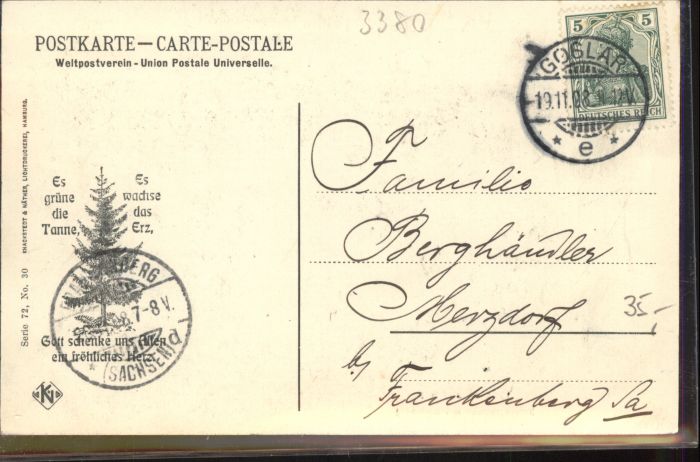 3380
POSTKARTE — CARTE-POSTALE
Weltpostverein - Union Postale Universelle.
5 5
DEUTSCHES REICH
GOSLAR
19.11.08
* e *
Es grüne die Tanne,
Es wachse das Erz,
Gott schenke uns Allen
ein fröhliches Herz.
BERG
7-8 V.
(SACHSEN)
d
Familie
Berghändler
Merzdorf
b/
Frankenberg Sa
35,-
KNACKSTEDT & NÄTHER, LICHTDRUCKEREI, HAMBURG.
Serie 72, No. 30